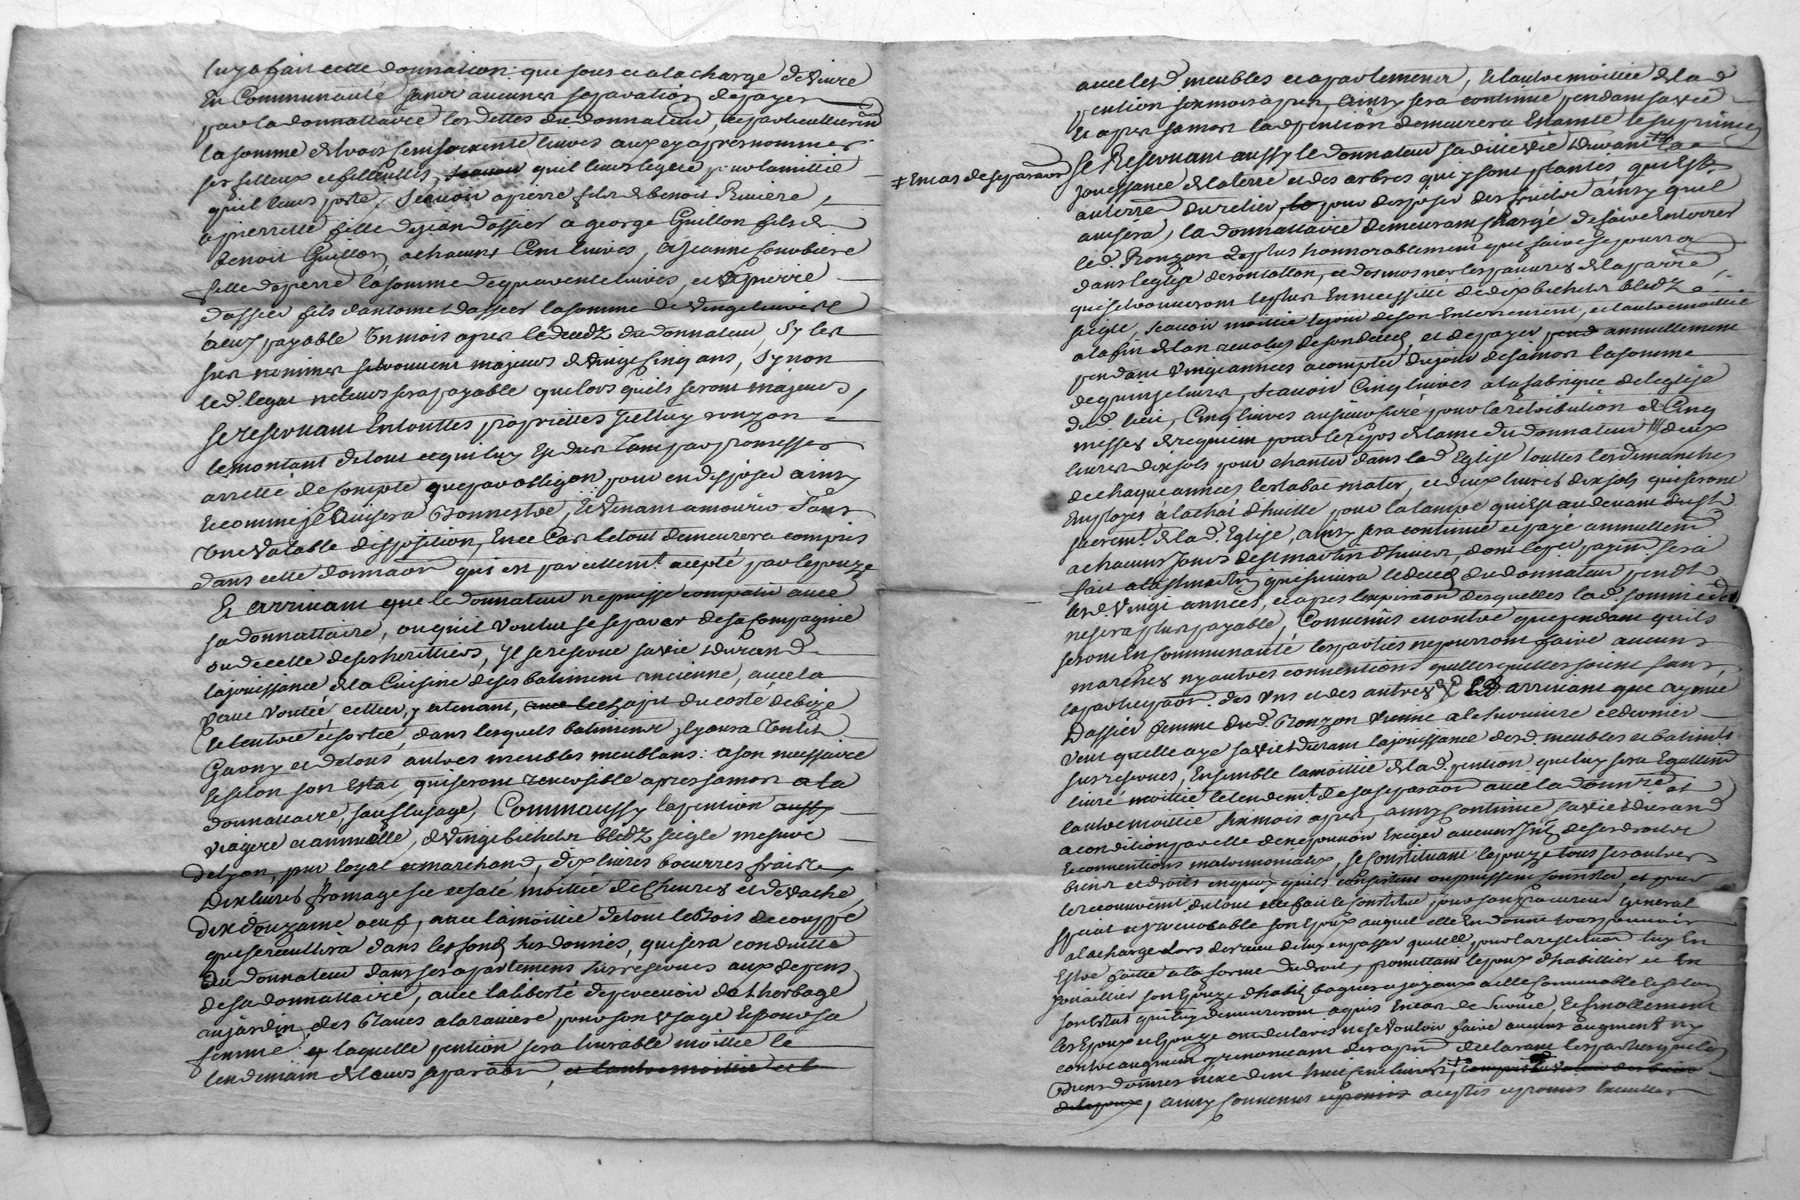 luy a fait cette donnation que sous et a la charge de vivre
en Communauté sans aucunes separation de payer
par la donnattaire les dettes du donnateur, et particullierem
la somme de trois cent soixente livres aux cy apres nommés
ses filleux et filleulles, qu'il leurs legue pour lamittié
qu'il leurs porte, scavoir a pierre fils de benoit Riviere,
a pierrette fille de jean dassier a george Guillon fils de
benoit Guillon a chacuns Cent livres, a jeanne
fille de pierre la somme de quarente livres, et a pierre
dassier fils d'antoine dassier la somme de vingt livres
a eux payable un mois apres le decedz du donnateur, sy les
sus nommes se trouvent majeurs de vingt cinq ans, synon
led. legat ne leurs sera payable que lors quils seront majeurs,
se reservant en touttes proprietes jcelluy ronzon
le montant de tout ce qui luy est deu tant par promesses
arretté de compte que par obligaon pour en disposer ainsy
et comme jl avisera bonnestre, et venant a mourir sans
une vallable disposition, en ce cas le tout demeurera compris
dans cette donnaon qui est pareillemt. acepté par lepouze
Et arrivant que le donnateur ne puisse compatir avec
sa donnattaire, ou qu'il voulut se separer de sa compagnie
ou de celle de ses herittiers, jl se reserve sa vie durand
la jouissance de la Cuisine de ses batiment ancienne, avec la
cave voutée cellier y attenant, du costé de bize
le entrée et sortie, dans lesquels batiment jl y aura un lit
Garny et de tous autres meubles meublans a son necessaire
et selon son estat qui seront reversible apres sa mort a la
donnattaire, sauf lusage, Comm aussy la pention
viagere et annuelle, de vingt bichets bledz seigle mesure
de lyon, pur loyal et marchand, dix livres beurres frais
dix livres fromage sec et salé moittié de chevres et de vache,
dix douzaine oeufs, avec la moittié de tout le bois de couppe
qui se recultira dans les fonds sus donnés, qui sera conduitte
du donnateur dans ses apartements sus reservés aux depens
de sa donnattaire, avec la liberté de percevoir de l'herbage
au jardin des raves a la raviere pour son usage et pour sa
femme laquelle pention sera livrable moittié le
lendemain de leurs separaon, et l'autre moittié
avec lesd meubles et apartement, et l'autre moittié de lad
pention six mois apres, ainsy sera continué pendant sa vie
et apres sa mort lad pention demeurera esteinte et suprimée
# En cas de separaon
Se Reservant aussy le donnateur sa ditte vie durant # la
jouissance de la terre et des arbres qui y sont plantés qui est
au terre du relier, pour disposer des fruits ainsy quil
avisera, la donnattaire demeurant chargé de faire enterrer
led. Ronzon le plus honnorablement que faire se pourra
dans leglise de, et daumosner les pauvres de la parr
qui se trouveront le plus en necessitté de dix bichets bledz
seigle, scavoir moittié le jour de son enterrement, et l'autre moittié
a la fin de l'an revolus de son deces, et de payer annuellement
pendant vingt années a compter du jour de sa mort la somme
de quinze livres, scavoir Cinq livres a la fabrique de leglise
dud. lieu, Cinq livres au sieur curé pour la retribution de Cinq
messes de requiem pour le repos de lame du donnateur deux
livres dix sols pour chanter dans lad Eglise touttes les dimanches
de chaque années le stabat mater, et deux livres dix sols qui seront
Employes a lachat d'huille pour la lampe qui est au devant du st
sacremt. de lad. Eglise, ainsy sera continué et payé annuellemt
a chacuns jours de st martin d'hiver, dont le per. payemt sera
fait a la st martin qui suivra le deces du donnateur pendt
lesd. vingt années, et apres l'expiraon desquelles lad. somme
ne sera plus payable, Convenus en outre que pendant quils
seront en communauté les parties ne pourront faire aucuns
marches ny autres conventions quelles quelles soient sans
la participaon des uns et des autres arrivant que aymée
Dassier femme dud. Ronzon vienne a le survivre ce dernier
veut quelle aye sa vie durant la jouissance desd. meubles et batimts
sus reservés, Ensemble la moittié de lad. pention qui luy sera egallemt
livré moittié le lendemt de sa separaon avec la donnre et
l'autre moittié six mois apres, ainsy continué sa vie durand
a condition par elle de ne pouvoir exiger aucuns jnt de ses droits
et conventions matrimoniaux, se constituant lepouze tous ses autres
biens et droits en quoy quils consistent ou puissent consister, et pour
le recouvremt du tout elle fait et constitue pour son procureur general
special et irrevocable son Epoux auquel elle en donne tous pouvoir
a la charge lors du receu de luy en passer quittce pour la restituaon luy en
Estre faitte a la forme du droit, promettant lepoux d'habiller et en
jouailler son Epouze d'habits bagues et joyaux a elle convenable et selon
son Estat qui luy demeureront acquis en cas de survie, et finallement
les Epoux et Epouze ont declarés ne se vouloir faire aucuns augment ny
contre augment y renonceant des a pnt declarant les parties que les
biens donnés n'exedent
 ainsy convenus aceptés et promis executer